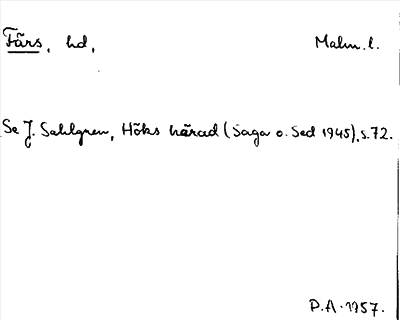 Färs, hd, Malm. l.
Se J. Sahlgren, Höks härad (Saga o. Sed 1945), s. 72.
P.A. 1957.